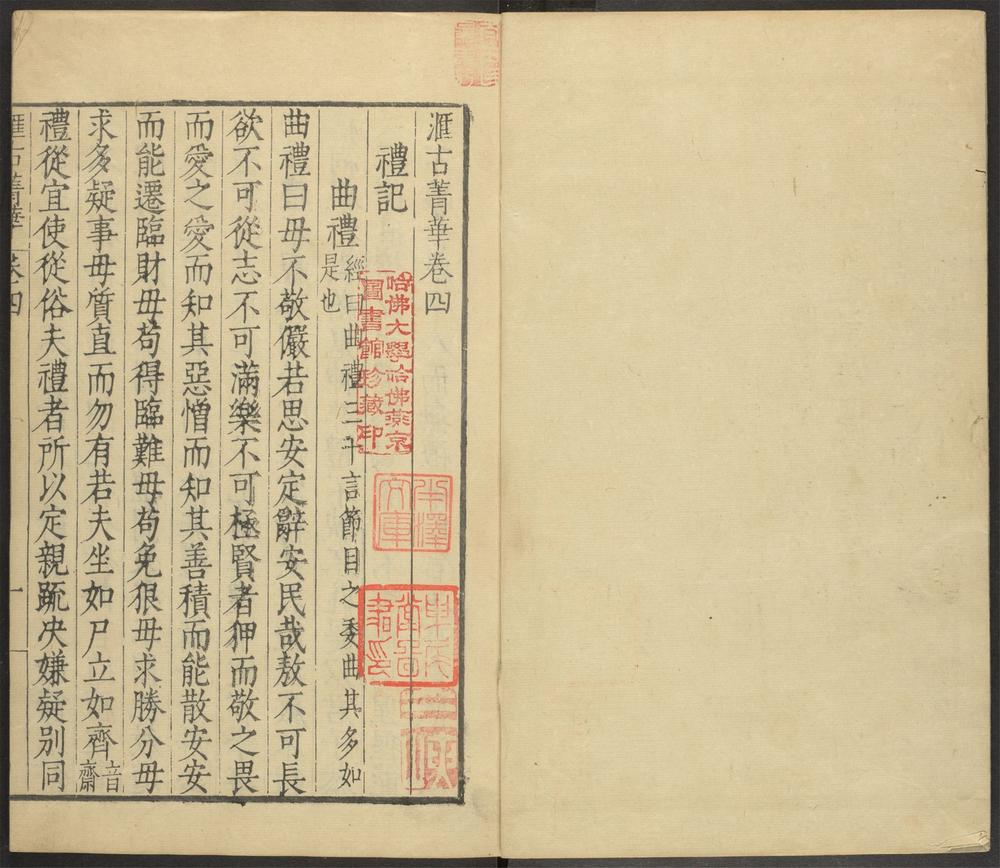 滙古菁華卷四
禮記
曲禮 經曰曲禮三千言節目之委曲其多如
是也
曲禮曰毋不敬儼若思安定辭安民哉敖不可長
欲不可從志不可滿樂不可極賢者狎而敬之畏
而愛之愛而知其惡憎而知其善積而能散安安
而能遷臨財毋苟得臨難毋苟免狠毋求勝分毋
求多疑事毋質直而勿有若夫坐如尸立如齊音
齋
禮從宜使從俗夫禮者所以定親䟽决嫌疑别同
滙古菁華 卷四 一
哈佛大學哈佛燕京
圖書館珍藏印